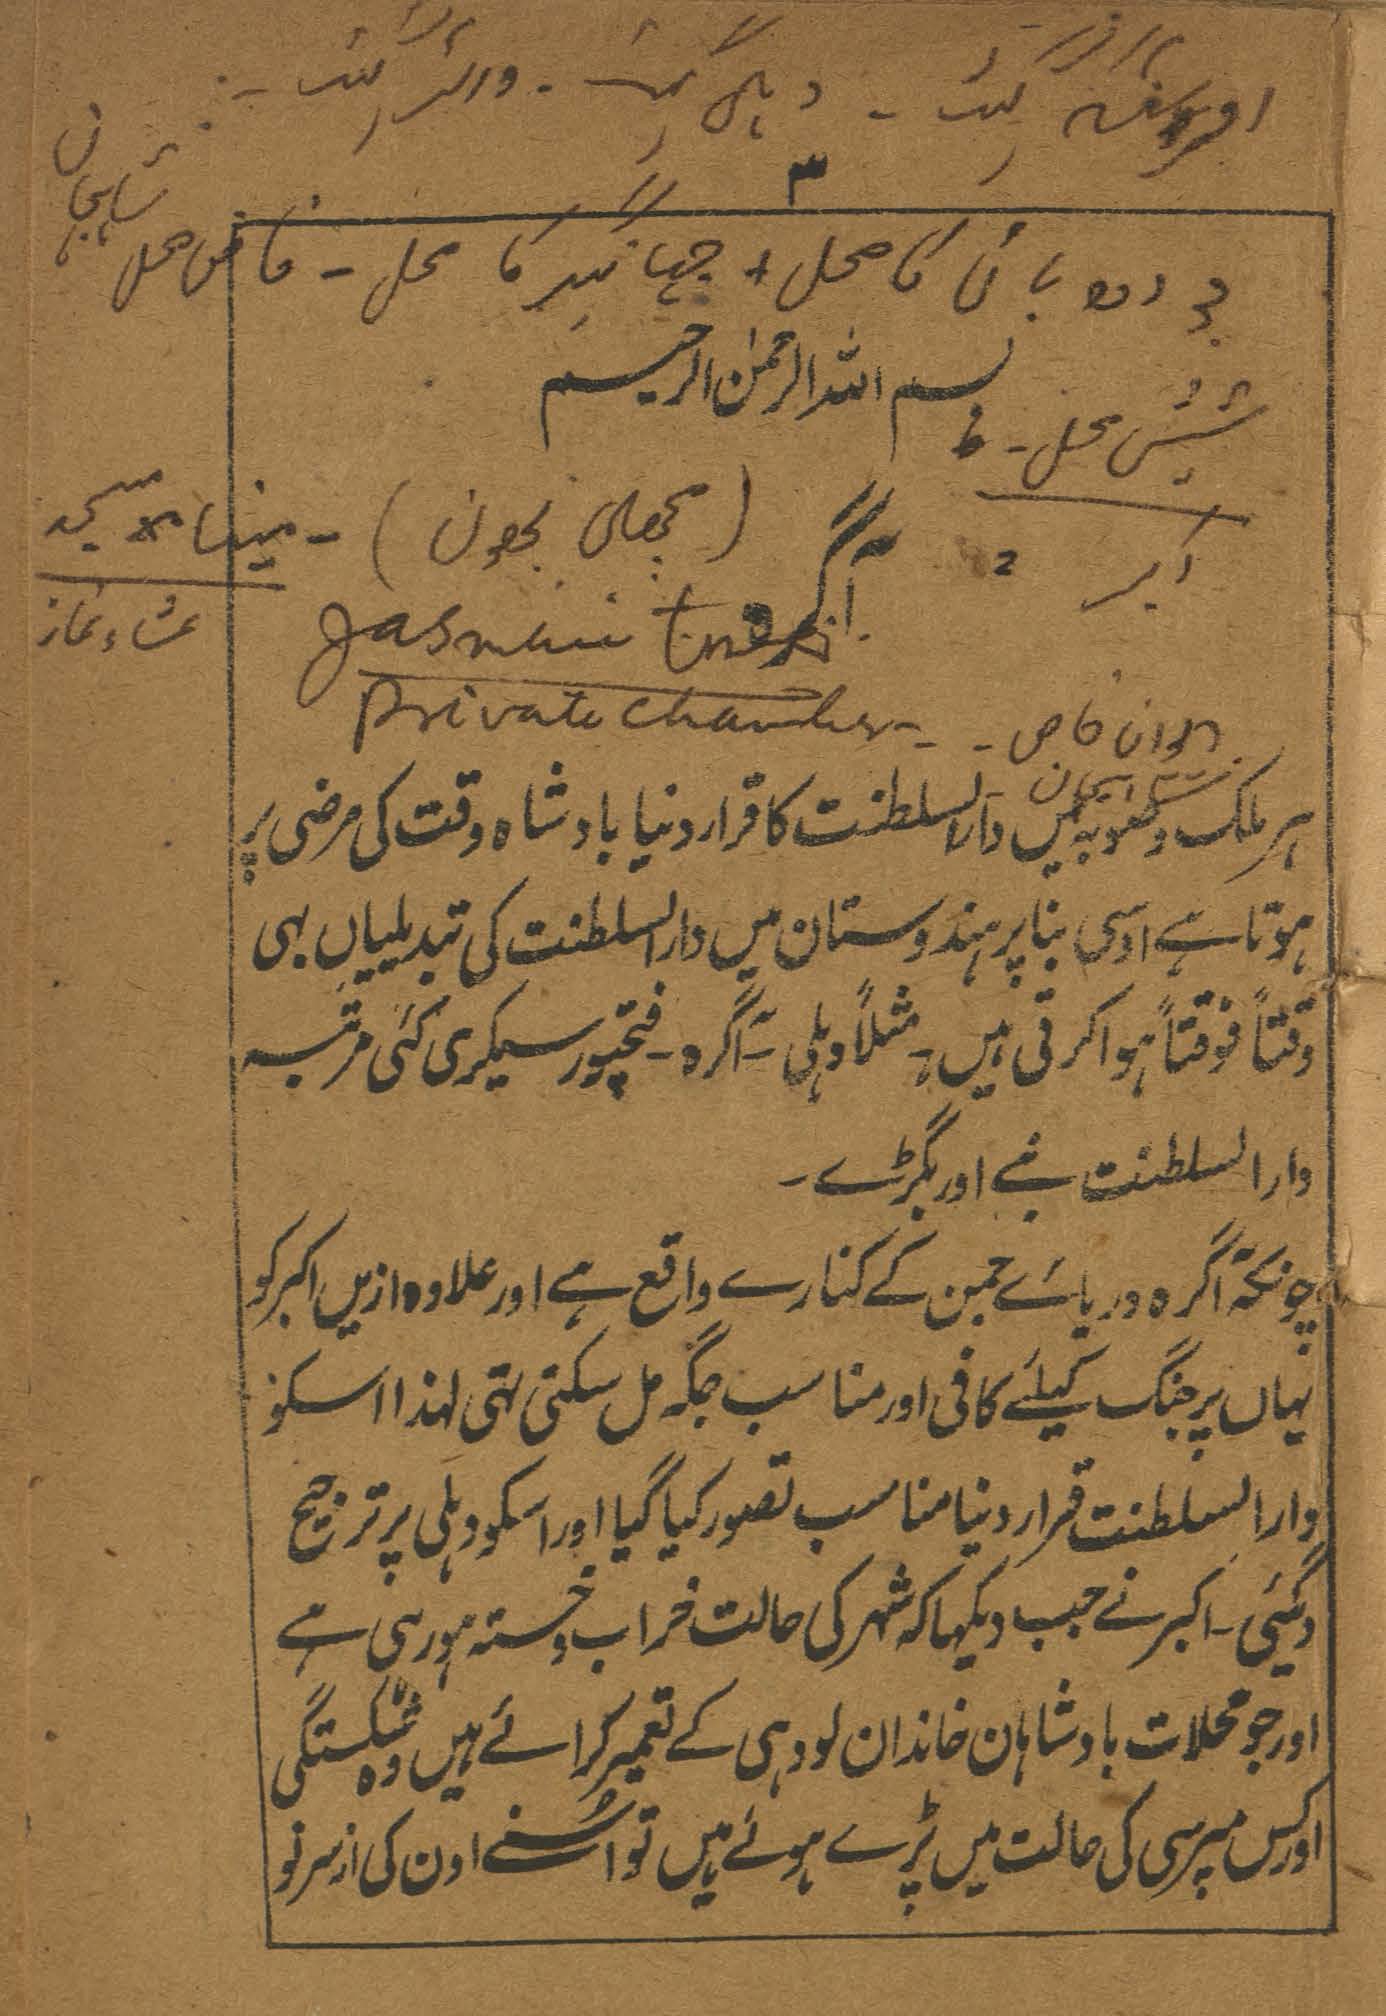 گیٹ ۔ دہلی گیٹ ۔ واٹر گیٹ ۔
۳
شاہجہان
جودھ بائی کا محل + جہانگیر کا محل ۔ خاص محل
بسم اللہ الرحمٰن الرحیم
شیش محل ۔
(مچھلی بھون) ۔ مینا مسجد
اکبر 2
آگرہ
عشاء نماز
Jasmine tower
Private chamber - - دیوان خاص
شاہجہان
ہر ملک وصوبہ میں دارالسلطنت کا قرار دنیا بادشاہ وقت کی مرضی پر
ہوتا ہے اوسی بنا پر ہندوستان میں دارالسلطنت کی تبدیلیاں بہی
وقتاً فوقتاً ہوا کرتی ہیں ۔ مثلاً دہلی ۔ آگرہ ۔ فتحپور سیکری کئی مرتبہ
دارالسلطنت بنے اور بگڑے ۔
چونکہ آگرہ دریائے جمن کے کنارے واقع ہے اور علاوہ ازیں اکبر کو
یہاں پر جنگ کیلئے کافی اور مناسب جگہ مل سکتی تہی لہذا اسکو
دارالسلطنت قرار دنیا مناسب تصور کیا گیا اور اسکو دہلی پر ترجیح
دیگئی ۔ اکبر نے جب دیکہا کہ شہر کی حالت خراب وخستہ ہورہی ہے
اور جو محلات بادشاہان خاندان لودہی کے تعمیر کرائے ہیں وہ شکستگی
اور کس مپرسی کی حالت میں پڑے ہوئے ہیں تو اُسنے اون کی ازسرنو